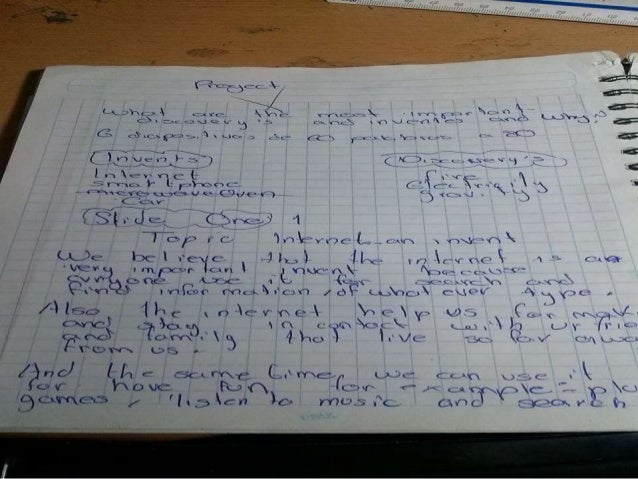 Proyect
What are the most important
discovery's and inventes and why?
6 diapositivas de 60 palabras a 80
Invents Discovery's
Internet fire
smartphone electriqity
microwave oven gravity
Car
Slide One 1
Topic Internet an invent
We believe that the internet is an
very important invent because
everyone use it for search and
find information, of what ever type.
Also the internet help us for mak
and stay in contact with ur frie
and family that live so far awa
from us.
And the same time, we can use it
for have fun for example = pla
games, listen to music and search